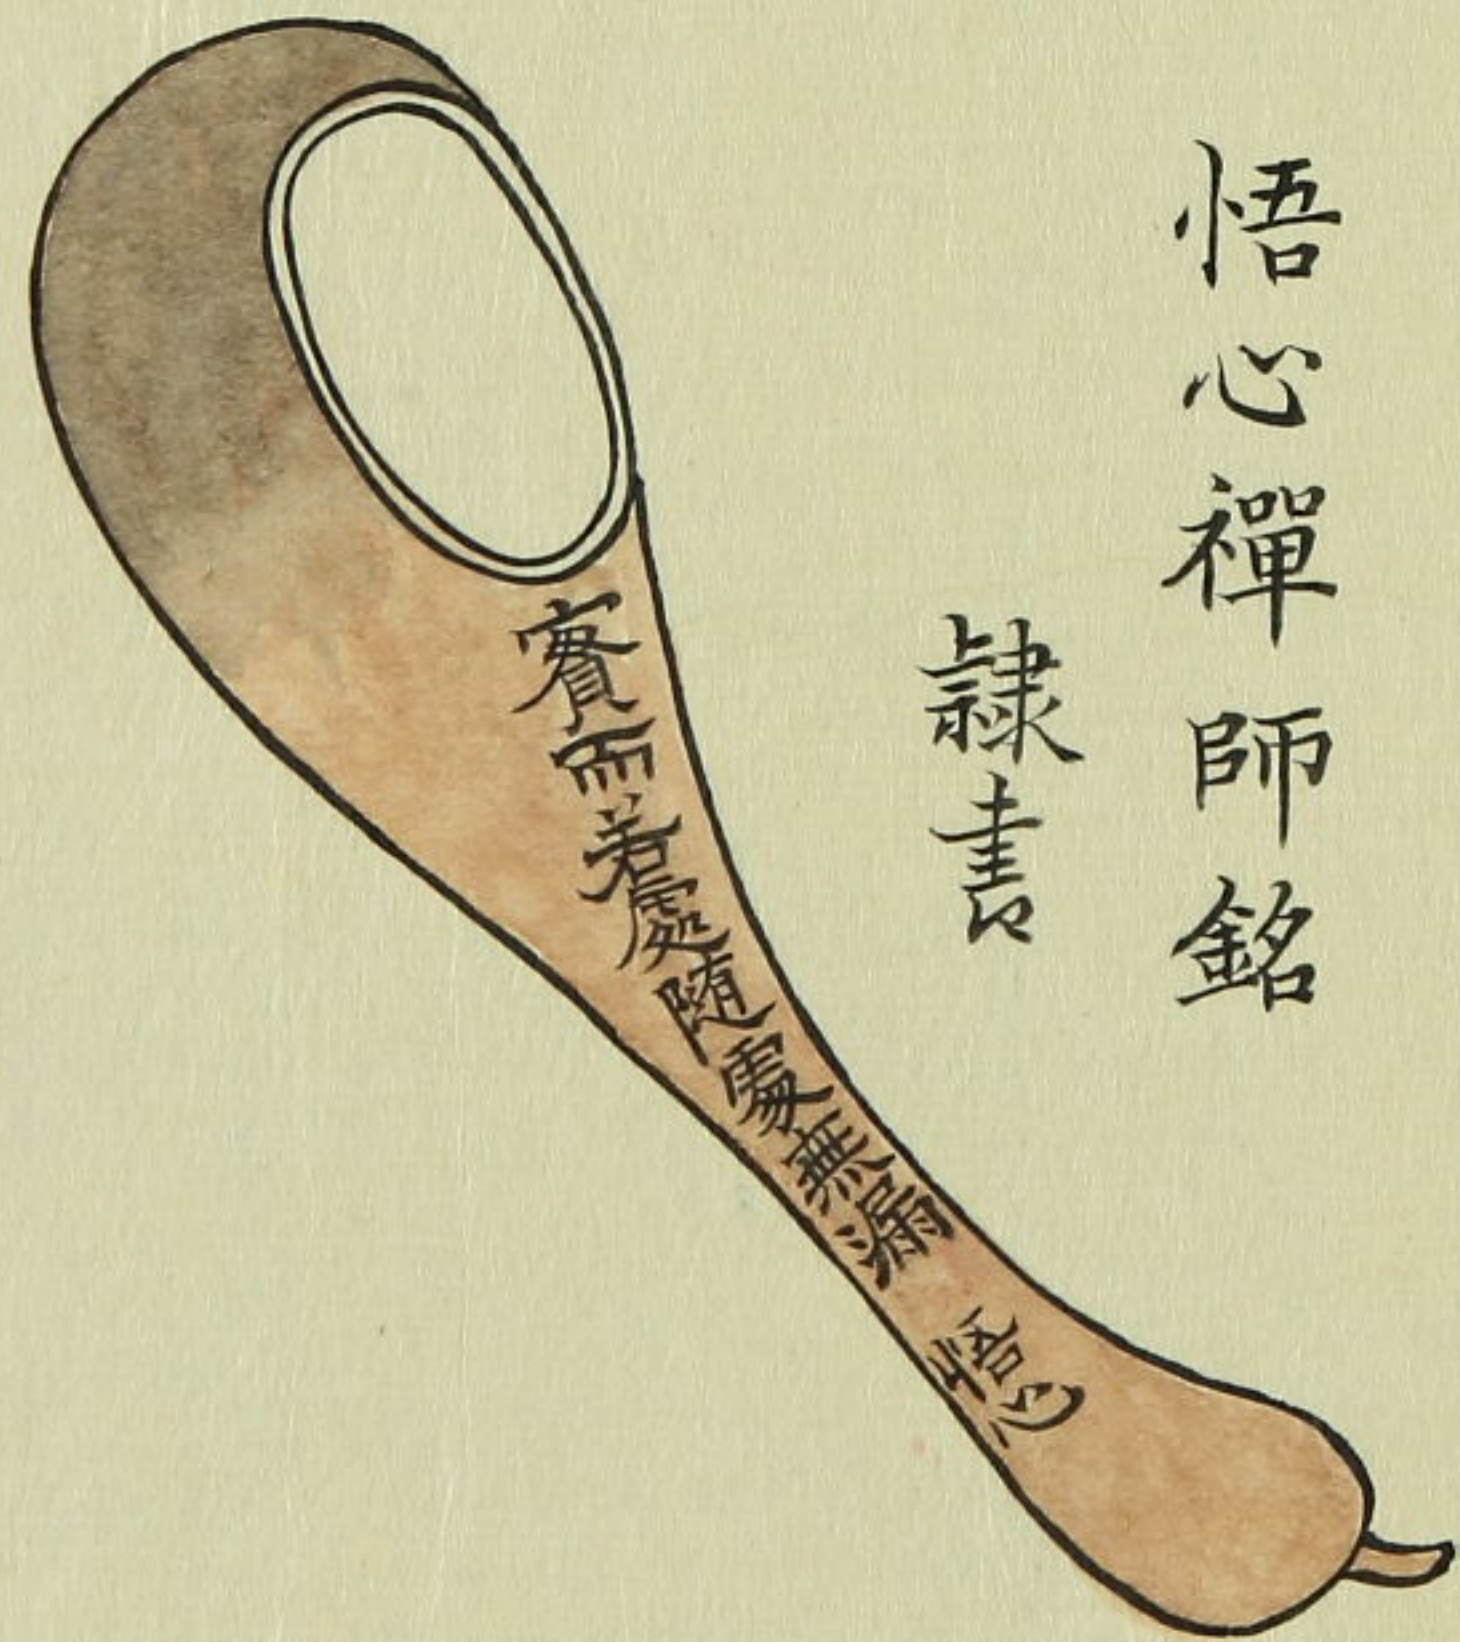 悟心禪師銘
隷書
實而若虛随處無漏
悟心